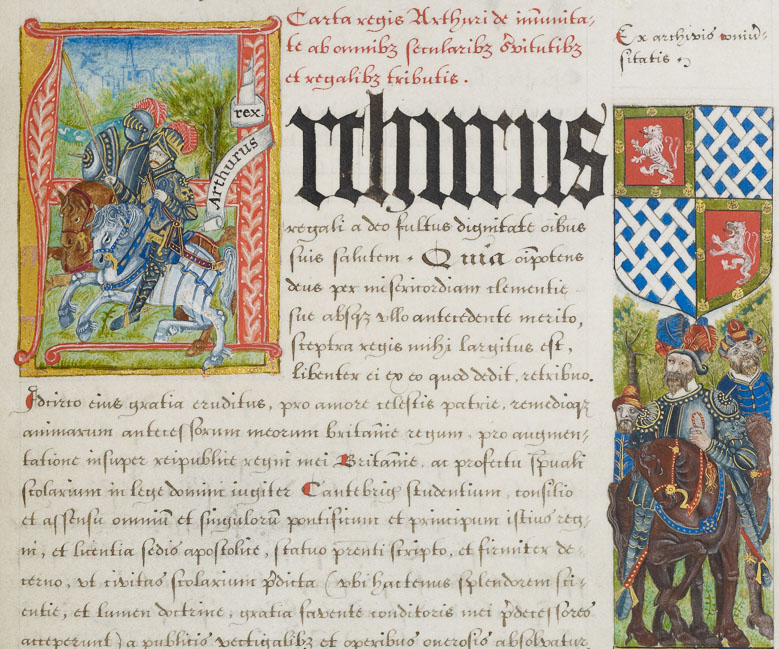 Carta regis Arthuri de im̄unita-
te ab omnibꝫ secularibꝫ s̄vitutibꝫ
et regalibꝫ tributis.
Ex archivis
sitatis
rex.
Arthurus
rthurus
regali a deo fultus dignitate oībus
suis salutem. Quia oīpotens
deus per misericordiam clementie
sue absqꝫ vllo antecedente merito,
sceptra regis mihi largitus est,
libenter ei ex eo quod dedit, retribuo.
Idcirco eius gratia eruditus, pro amore celestis patrie, remedioqꝫ
animarum antecessorum meorum britanie regum, pro augmen-
tatione insuper reipublice regni mei Britanie, ac profectu sp̄uali
scolarium in lege domini iugiter Cantebrig studentium, consilio
et assensu omniū et singulorū pontificum et principum istius reg-
ni, et licentia sedis apostolice, statuo p̄senti scripto, et firmiter de-
cerno, vt civitas scolarium p̄dicta (vbi hactenus splendorem sci-
entie, et lumen doctrine, gratia favente conditoris mei p̄decessores
acceperunt) a publicis vectigalibꝫ et operibus onerosis absolvatur